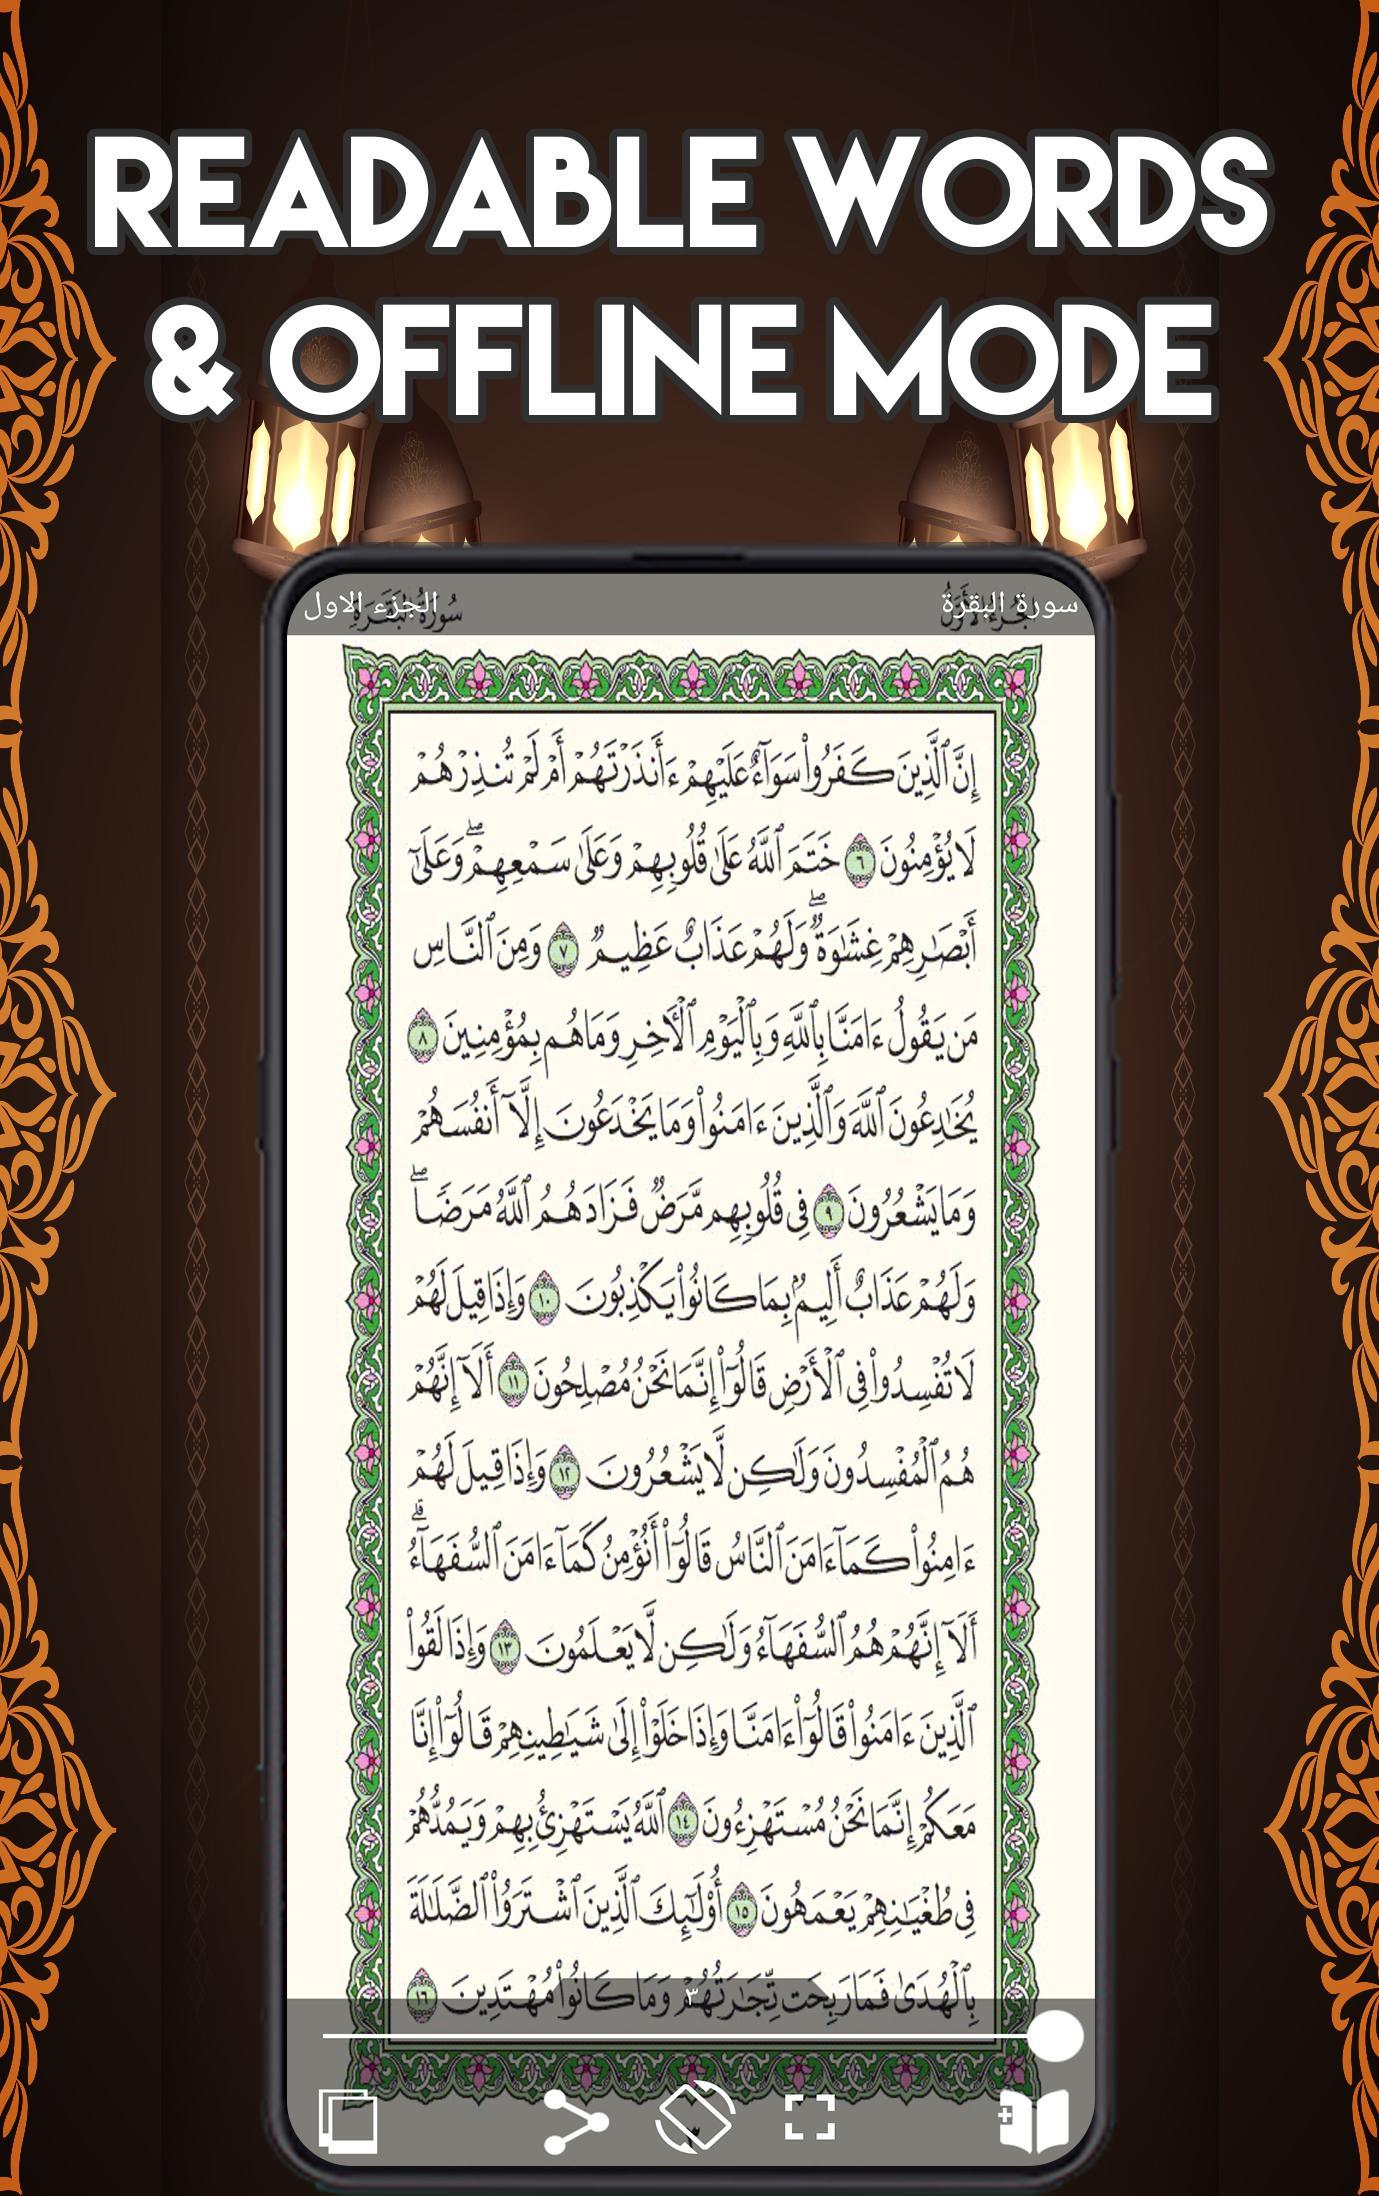 READABLE WORDS
& OFFLINE MODE
سورة البقرة
الجزء الاول
الجُزءُ الأَوَّلُ
سُورَةُ البَقَرَةِ
إِنَّ ٱلَّذِينَ كَفَرُواْ سَوَآءٌ عَلَيْهِمْ ءَأَنذَرْتَهُمْ أَمْ لَمْ تُنذِرْهُمْ
لَا يُؤْمِنُونَ ٦ خَتَمَ ٱللَّهُ عَلَىٰ قُلُوبِهِمْ وَعَلَىٰ سَمْعِهِمْۖ وَعَلَىٰٓ
أَبْصَٰرِهِمْ غِشَٰوَةٌۖ وَلَهُمْ عَذَابٌ عَظِيمٌ ٧ وَمِنَ ٱلنَّاسِ
مَن يَقُولُ ءَامَنَّا بِٱللَّهِ وَبِٱلْيَوْمِ ٱلْأَخِرِ وَمَا هُم بِمُؤْمِنِينَ ٨
يُخَٰدِعُونَ ٱللَّهَ وَٱلَّذِينَ ءَامَنُواْ وَمَا يَخْدَعُونَ إِلَّآ أَنفُسَهُمْ
وَمَا يَشْعُرُونَ ٩ فِى قُلُوبِهِم مَّرَضٌ فَزَادَهُمُ ٱللَّهُ مَرَضًاۖ
وَلَهُمْ عَذَابٌ أَلِيمٌۢ بِمَا كَانُواْ يَكْذِبُونَ ١٠ وَإِذَا قِيلَ لَهُمْ
لَا تُفْسِدُواْ فِى ٱلْأَرْضِ قَالُوٓاْ إِنَّمَا نَحْنُ مُصْلِحُونَ ١١ أَلَآ إِنَّهُمْ
هُمُ ٱلْمُفْسِدُونَ وَلَٰكِن لَّا يَشْعُرُونَ ١٢ وَإِذَا قِيلَ لَهُمْ
ءَامِنُواْ كَمَآ ءَامَنَ ٱلنَّاسُ قَالُوٓاْ أَنُؤْمِنُ كَمَآ ءَامَنَ ٱلسُّفَهَآءُۗ
أَلَآ إِنَّهُمْ هُمُ ٱلسُّفَهَآءُ وَلَٰكِن لَّا يَعْلَمُونَ ١٣ وَإِذَا لَقُواْ
ٱلَّذِينَ ءَامَنُواْ قَالُوٓاْ ءَامَنَّا وَإِذَا خَلَوْاْ إِلَىٰ شَيَٰطِينِهِمْ قَالُوٓاْ إِنَّا
مَعَكُمْ إِنَّمَا نَحْنُ مُسْتَهْزِءُونَ ١٤ ٱللَّهُ يَسْتَهْزِئُ بِهِمْ وَيَمُدُّهُمْ
فِى طُغْيَٰنِهِمْ يَعْمَهُونَ ١٥ أُوْلَٰٓئِكَ ٱلَّذِينَ ٱشْتَرَوُاْ ٱلضَّلَٰلَةَ
بِٱلْهُدَىٰ فَمَا رَبِحَت تِّجَٰرَتُهُمْ وَمَا كَانُواْ مُهْتَدِينَ ١٦
٣
٣